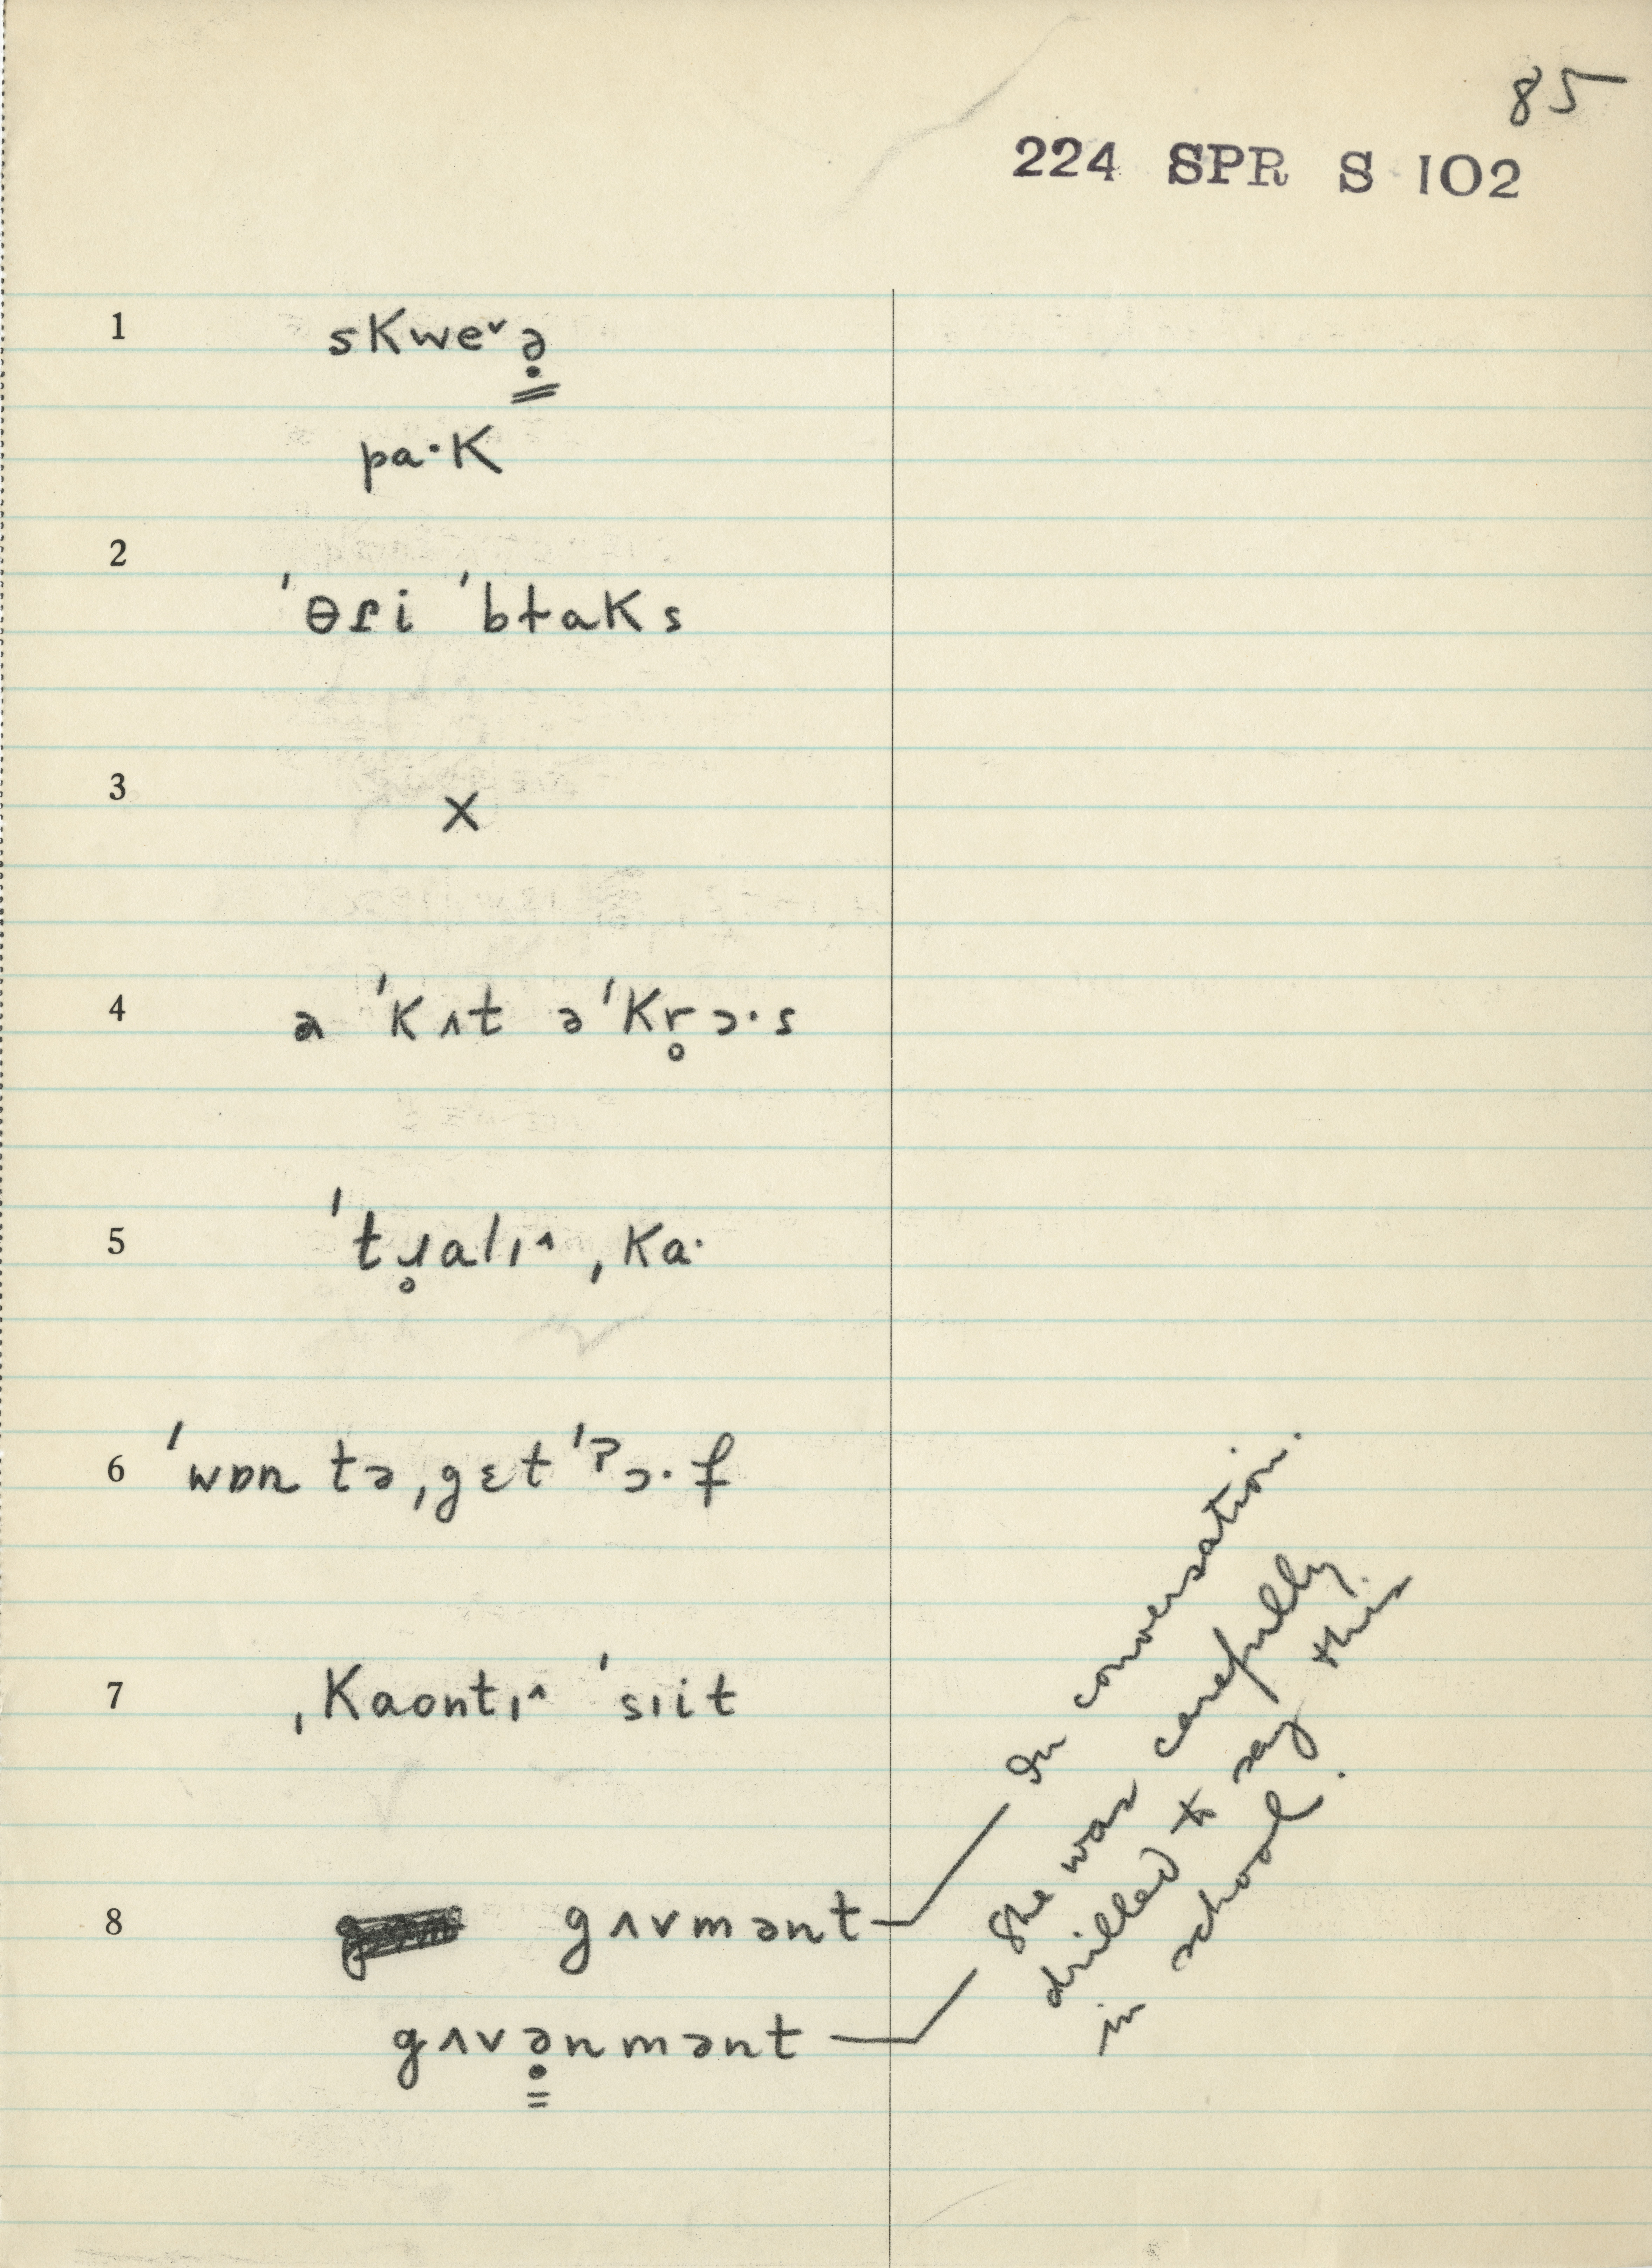 85
224 SPR S 102
1 skweᵛə̣
pa·k
2 ˈθɾi ˈbɫaks
3 X
4 ə ˈkʌt əˈkr̥ɔ·s
5 ˈtɹ̥alɪ^ ˌka·
6 ˈwɒn tə ˌgɛt ˈʔɔ·f
7 ˌkaontɪ^ ˈsɪit
8 gʌvmənt
gʌvə̣nmənt
In conversation.
She was carefully
drilled to say this
in school.